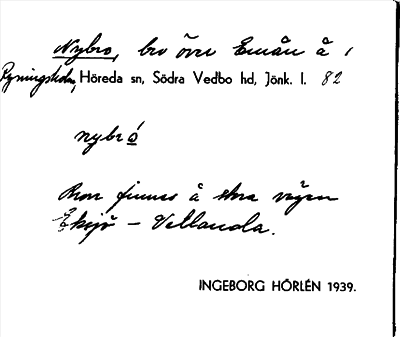 Nybro, bro över Emån å /
Ryningsholm, Höreda sn, Södra Vedbo hd, Jönk. l. 82
nybró
Bron finnes å stora vägen
Eksjö – Vetlanda.
INGEBORG HÖRLÉN 1939.